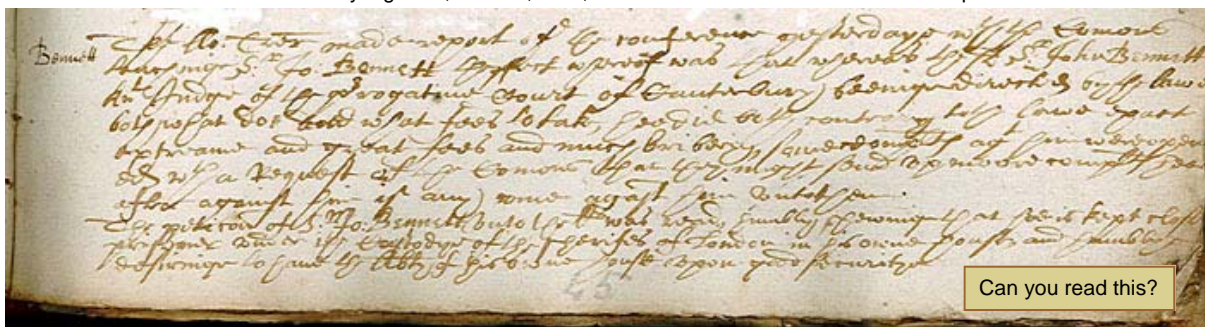 Bennett The Lo: Trer made a report of the conference yesterdaye wth the Comons
touchinge Sr Jo: Bennett theffect whereof was that whereas the sd Sr John Bennett
Judge of the prrogative Court of Canterbury) beeinge directed by the lawe
both what doe and what fees to take, hee did both contrary to the lawe exact
extreame and great fees and much bribery, some agt him were open
ed wth a Request of the Comons that they might send up moore complts
after against him if any) come agast him unto them.
The peticon of Sr Jo: Bennett unto the was read, humbly shewinge that hee is kept close
prisoner under the Custodye of the Sherifes of London in his owne house, and humbly
desiringe to have the libty of his owne house upon good securitye
45
Can you read this?